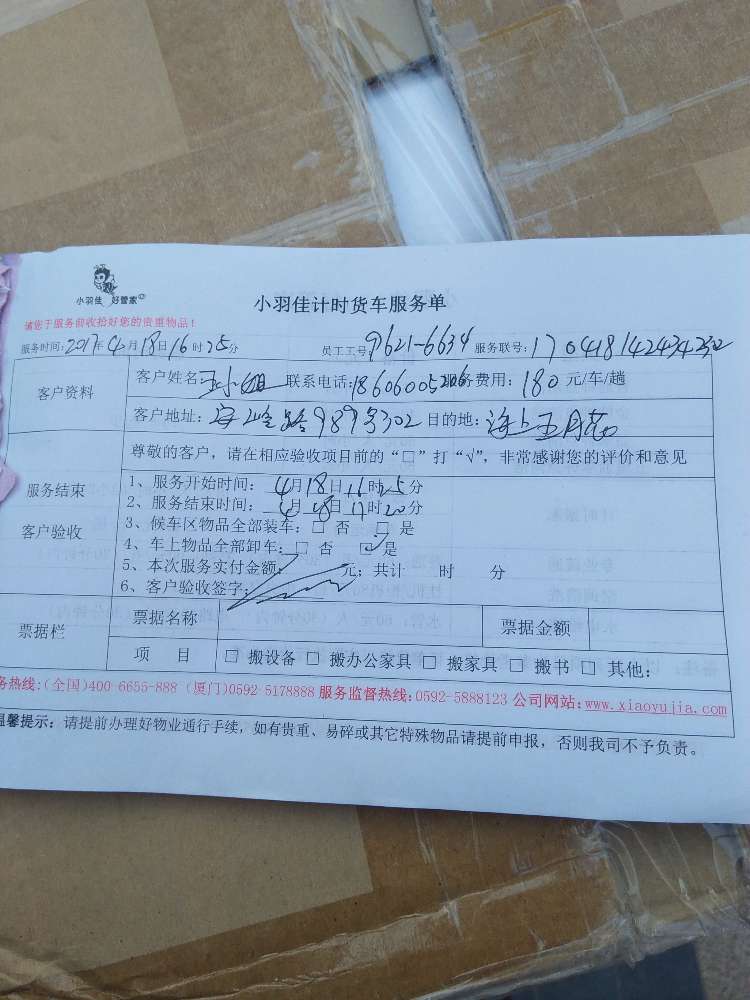 小羽佳 好管家
小羽佳计时货车服务单
请您于服务前收拾好您的贵重物品！
服务时间：2017年4月18日16时25分 员工工号9621-6634 服务联号：170418142434232
客户资料
客户姓名：王小姐 联系电话：18606005206 服务费用：180元/车/趟
客户地址：海峰路989号302 目的地：海上五月花
服务结束
客户验收
尊敬的客户，请在相应验收项目前的“□”打“√”，非常感谢您的评价和意见
1、服务开始时间：4月18日16时25分
2、服务结束时间：4月18日17时20分
3、候车区物品全部装车：□ 否 □ 是
4、车上物品全部卸车：□ 否 ☑ 是
5、本次服务实付金额： 元；共计 时 分
6、客户验收签字：
票据栏
票据名称 票据金额
项 目 □ 搬设备 □ 搬办公家具 □ 搬家具 □ 搬书 □ 其他：
务热线：(全国)400-6655-888 (厦门)0592-5178888 服务监督热线：0592-5888123 公司网站：www.xiaoyujia.com
温馨提示：请提前办理好物业通行手续，如有贵重、易碎或其它特殊物品请提前申报，否则我司不予负责。